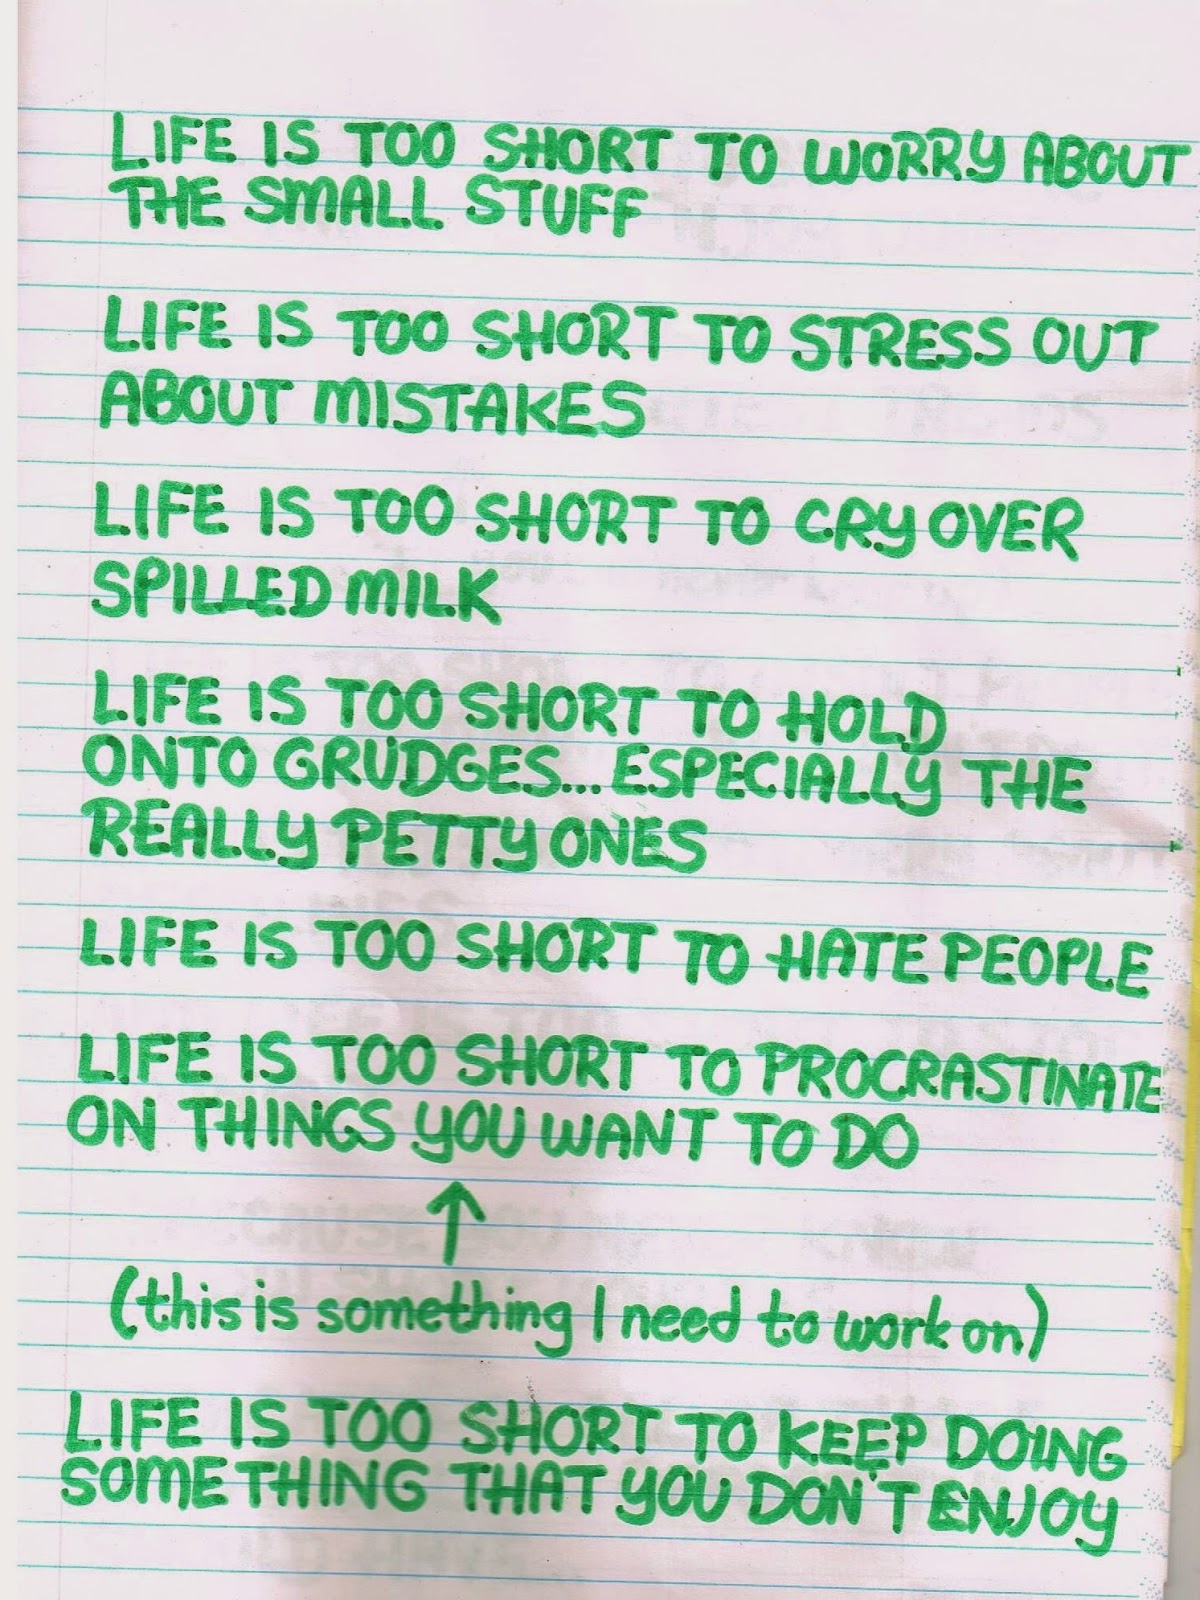 LIFE IS TOO SHORT TO WORRY ABOUT
THE SMALL STUFF
LIFE IS TOO SHORT TO STRESS OUT
ABOUT MISTAKES
LIFE IS TOO SHORT TO CRY OVER
SPILLED MILK
LIFE IS TOO SHORT TO HOLD
ONTO GRUDGES... ESPECIALLY THE
REALLY PETTY ONES
LIFE IS TOO SHORT TO HATE PEOPLE
LIFE IS TOO SHORT TO PROCRASTINATE
ON THINGS YOU WANT TO DO
(this is something I need to work on)
LIFE IS TOO SHORT TO KEEP DOING
SOMETHING THAT YOU DON'T ENJOY